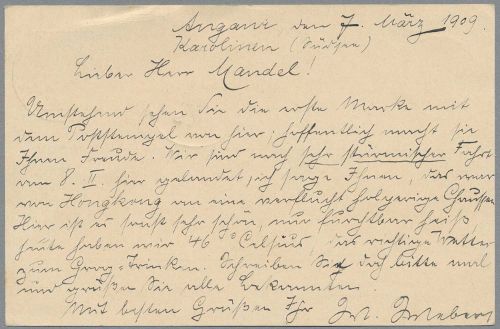 Angaur, den 7. März 1909.
Karolinen (Südsee)
Lieber Herr Mandel!
Umstehend sehen Sie die erste Marke mit
dem Poststempel von hier; hoffentlich macht sie
Ihnen Freude. Wir sind nach sehr stürmischer Fahrt
am 8. II. hier gelandet, ich sage Ihnen, das war
von Hongkong an eine verflucht holperige Chaussee
Hier ist es sonst sehr schön, nur furchtbar heiß
heute haben wir 46° Celsius, das richtige Wetter
zum Grog-Trinken. Schreiben Sie doch bitte mal
und grüßen Sie alle Bekannten.
Mit besten Grüßen Ihr